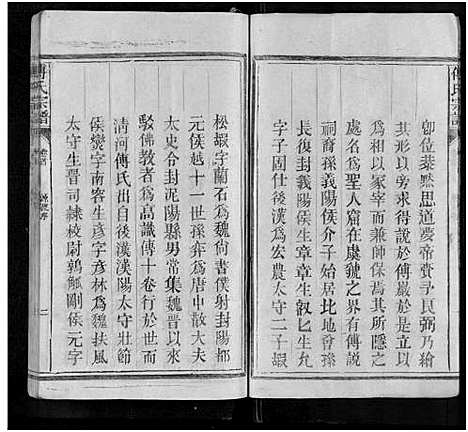 傅氏宗譜
卽位恭黙思道夢帝賚予良弼乃繪
其形以旁求得說於傅巖於是立以
為相以冢宰而兼師保焉其所隱之
處名為聖人窟在虞虢之界以傅説
錫姓焉裔孫義陽侯介子始居北地曾孫
長復封義陽侯生章章生叡叡生允
字子固仕後漢為宏農太守二子嘏
松嘏字蘭石為魏尙書僕射封陽都
元侯越十一世孫弈為唐中散大夫
太史令封泥陽縣男常集魏晉以來
駁佛敎者為高識傳十卷行於世而
清河傅氏出自後漢漢陽太守壯節
侯爕字南容生彥字彥林為魏扶風
太守生晉司隸校尉鶉觚剛侯元字
傅氏宗譜
二